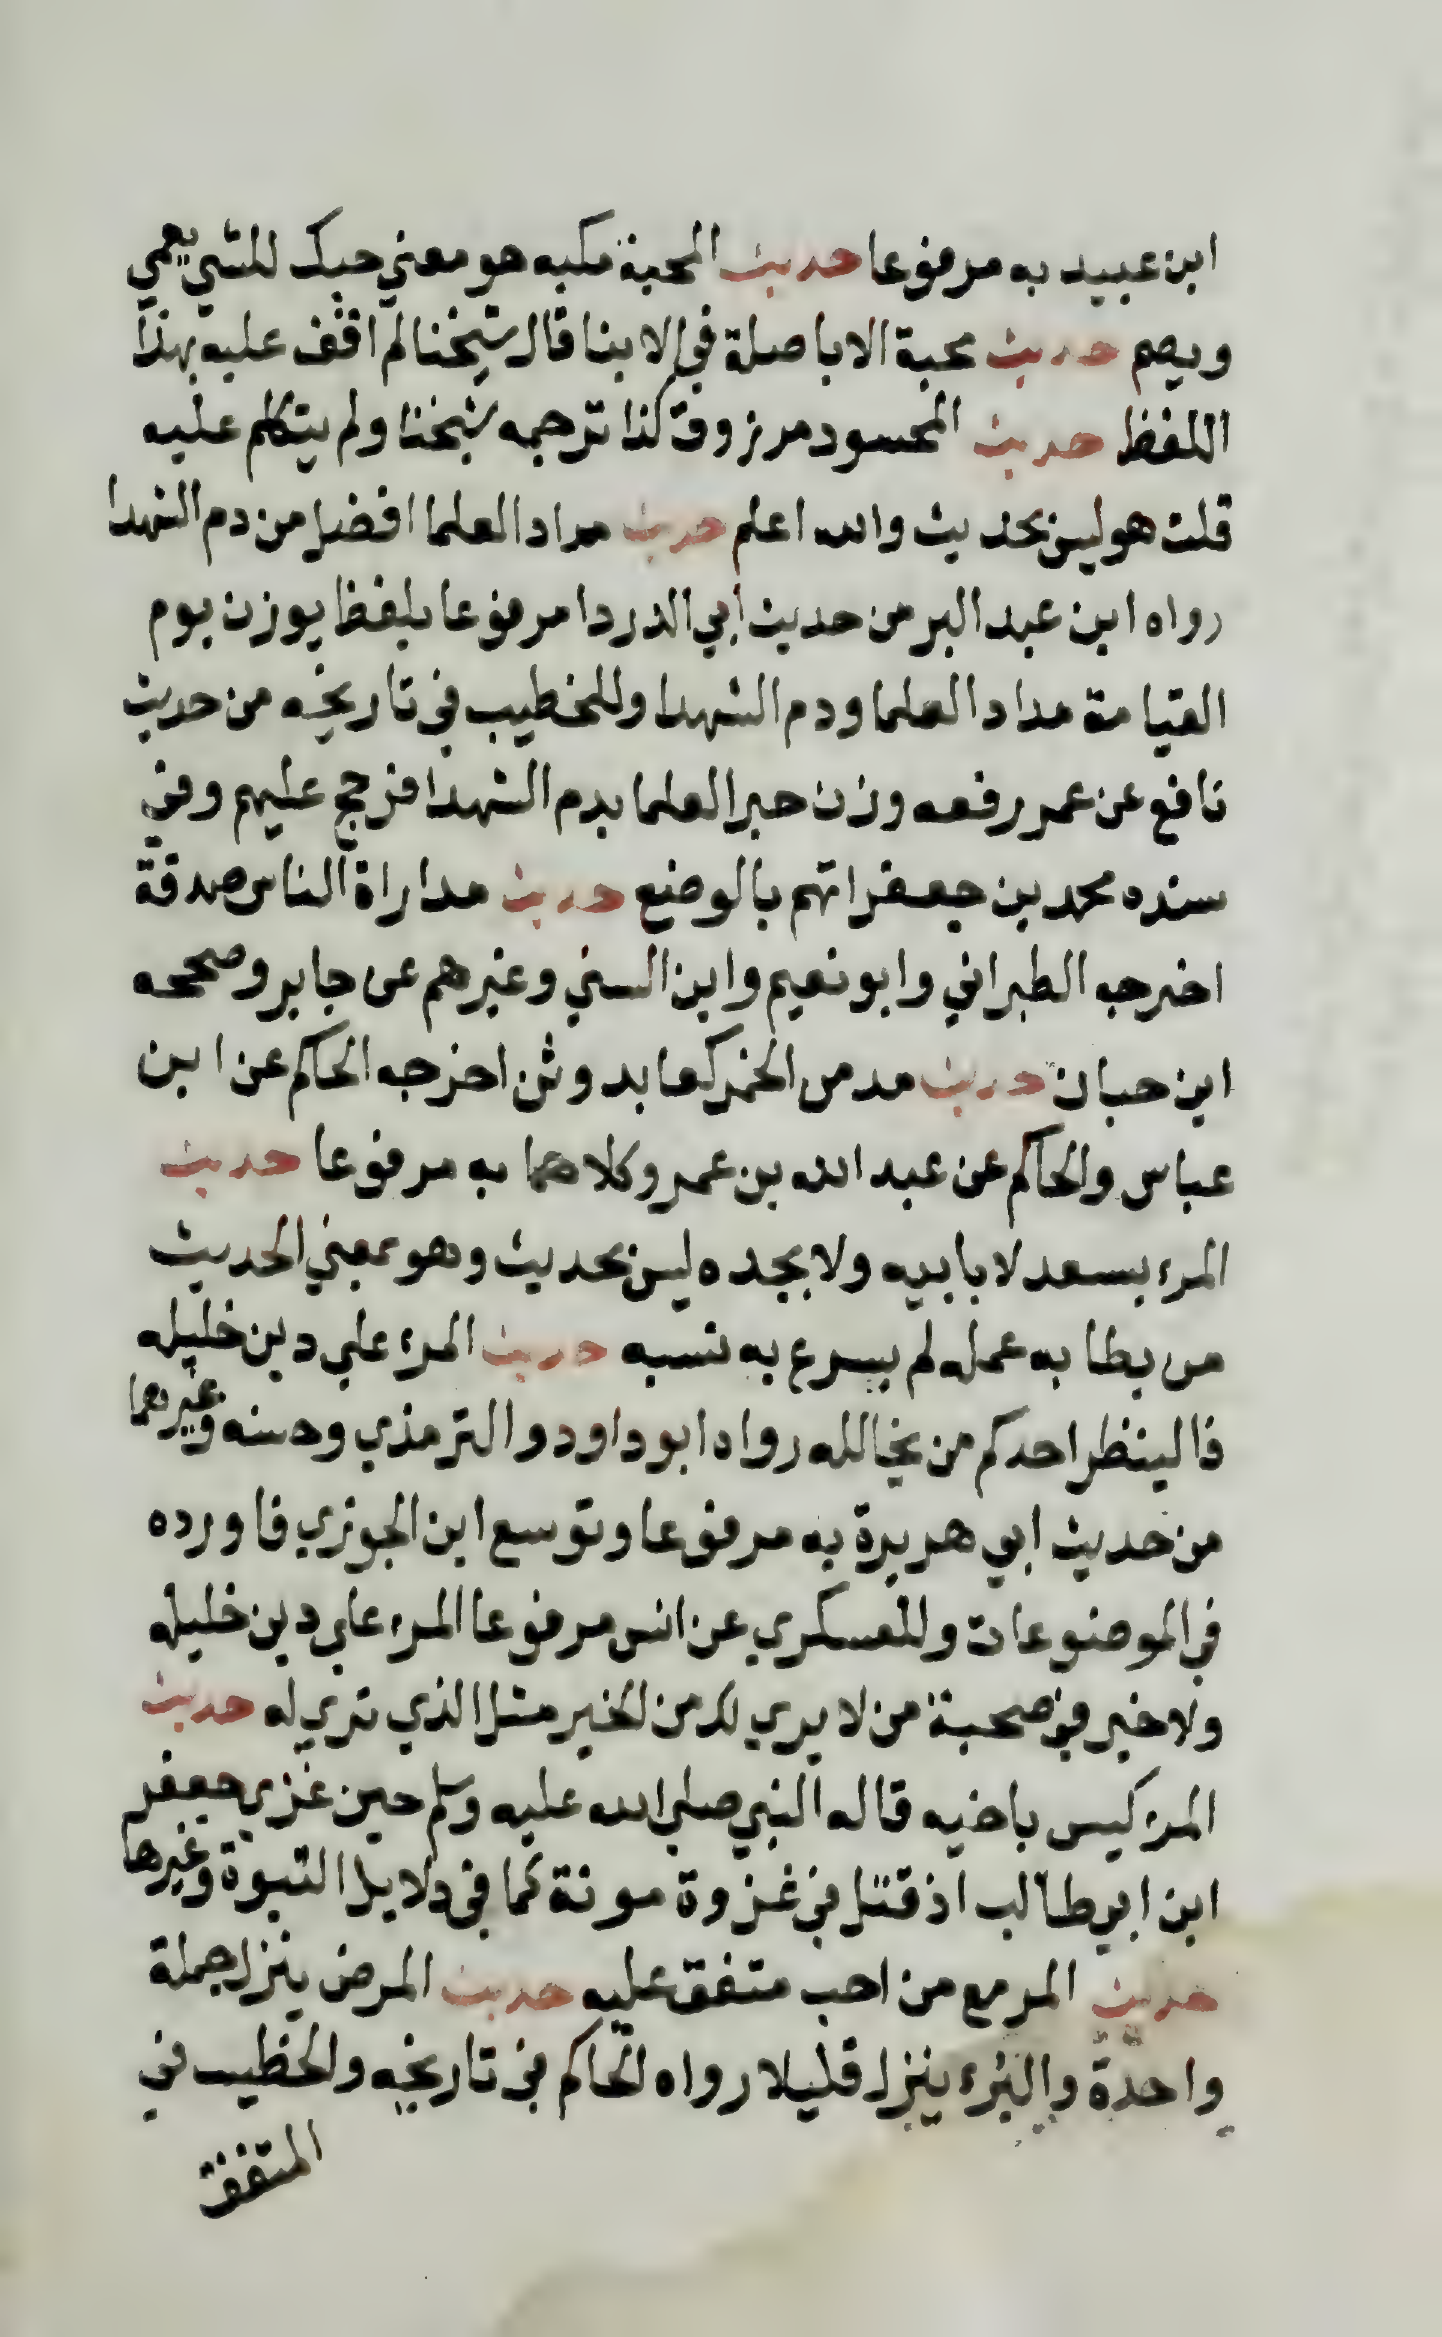 ابن عبيد به مرفوعا حديث المحبة مكبه هو معني حبك للشي يعمي
ويصم حديث محبة الابا صلة في الابنا قال شيخنا لم اقف عليه بهذا
اللفظ حديث المحسود مرزوق كذا ترجمه شيخنا ولم يتكلم عليه
قلت هو ليس بحديث والله اعلم حديث مداد العلما افضل من دم الشهدا
رواه ابن عبد البر من حديث ابي الدردا مرفوعا بلفظ يوزن يوم
القيامة مداد العلما ودم الشهدا وللخطيب في تاريخه من حديث
نافع عن عمر رفعه وزن حبر العلما بدم الشهدا فرجح عليهم وفي
سنده محمد بن جعفر اتهم بالوضع حديث مداراة الناس صدقة
اخرجه الطبراني وابو نعيم وابن السني وغيرهم عن جابر وصححه
ابن حبان حديث مدمن الخمر كعابد وثن اخرجه الحاكم عن ابن
عباس والحاكم عن عبد الله بن عمرو كلاهما به مرفوعا حديث
المرء يسعد لا بابيه ولا بجده ليس بحديث وهو بمعني الحديث
من بطا به عمله لم يسرع به نسبه حديث المرء علي دين خليله
فالينظر احدكم من يخالله رواه ابو داود والترمذي وحسنه وغيرهما
من حديث ابي هريرة به مرفوعا وتوسع ابن الجوزي فاورده
في الموضوعات وللعسكري عن انس مرفوعا المرء علي دين خليله
ولا خير في صحبة من لا يري لك من الخير مثل الذي تري له حديث
المرء كيس باخيه قاله النبي صلي الله عليه وسلم حين غزي جعفر
ابن ابي طالب اذ قتل في غزوة موتة كما في دلايل النبوة وغيرها
حديث المر مع من احب متفق عليه حديث المرض ينزل جملة
واحدة والبرء ينزل قليلا رواه الحاكم في تاريخه والخطيب في
المتفق